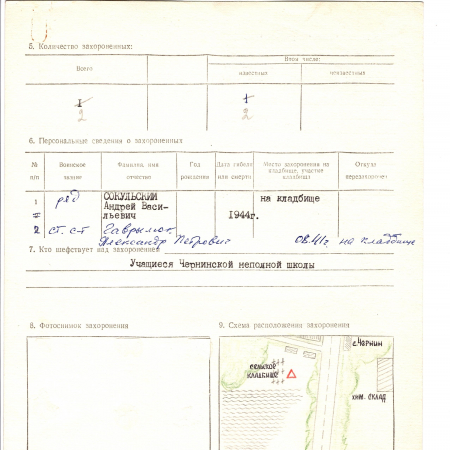 5. Количество захороненных:
Всего
В том числе:
известных
неизвестных
1
1
2
2
6. Персональные сведения о захороненных
№ п/п
Воинское звание
Фамилия, имя отчество
Год рождения
Дата гибели или смерти
Место захоронения на кладбище, участке кладбища
Откуда перезахоронен
1 ряд СОКУЛЬСКИЙ на кладбище
Андрей Васи-
льевич 1944г.
2 ст. с-т Гаврилюк
Александр Петрович 08.41г на кладбище
7. Кто шефствует над захоронением
Учащиеся Чернинской неполной школы
8. Фотоснимок захоронения
9. Схема расположения захоронения
с. Чернин
СЕЛЬСКОЕ
КЛАДБИЩЕ
хим. СКЛАД